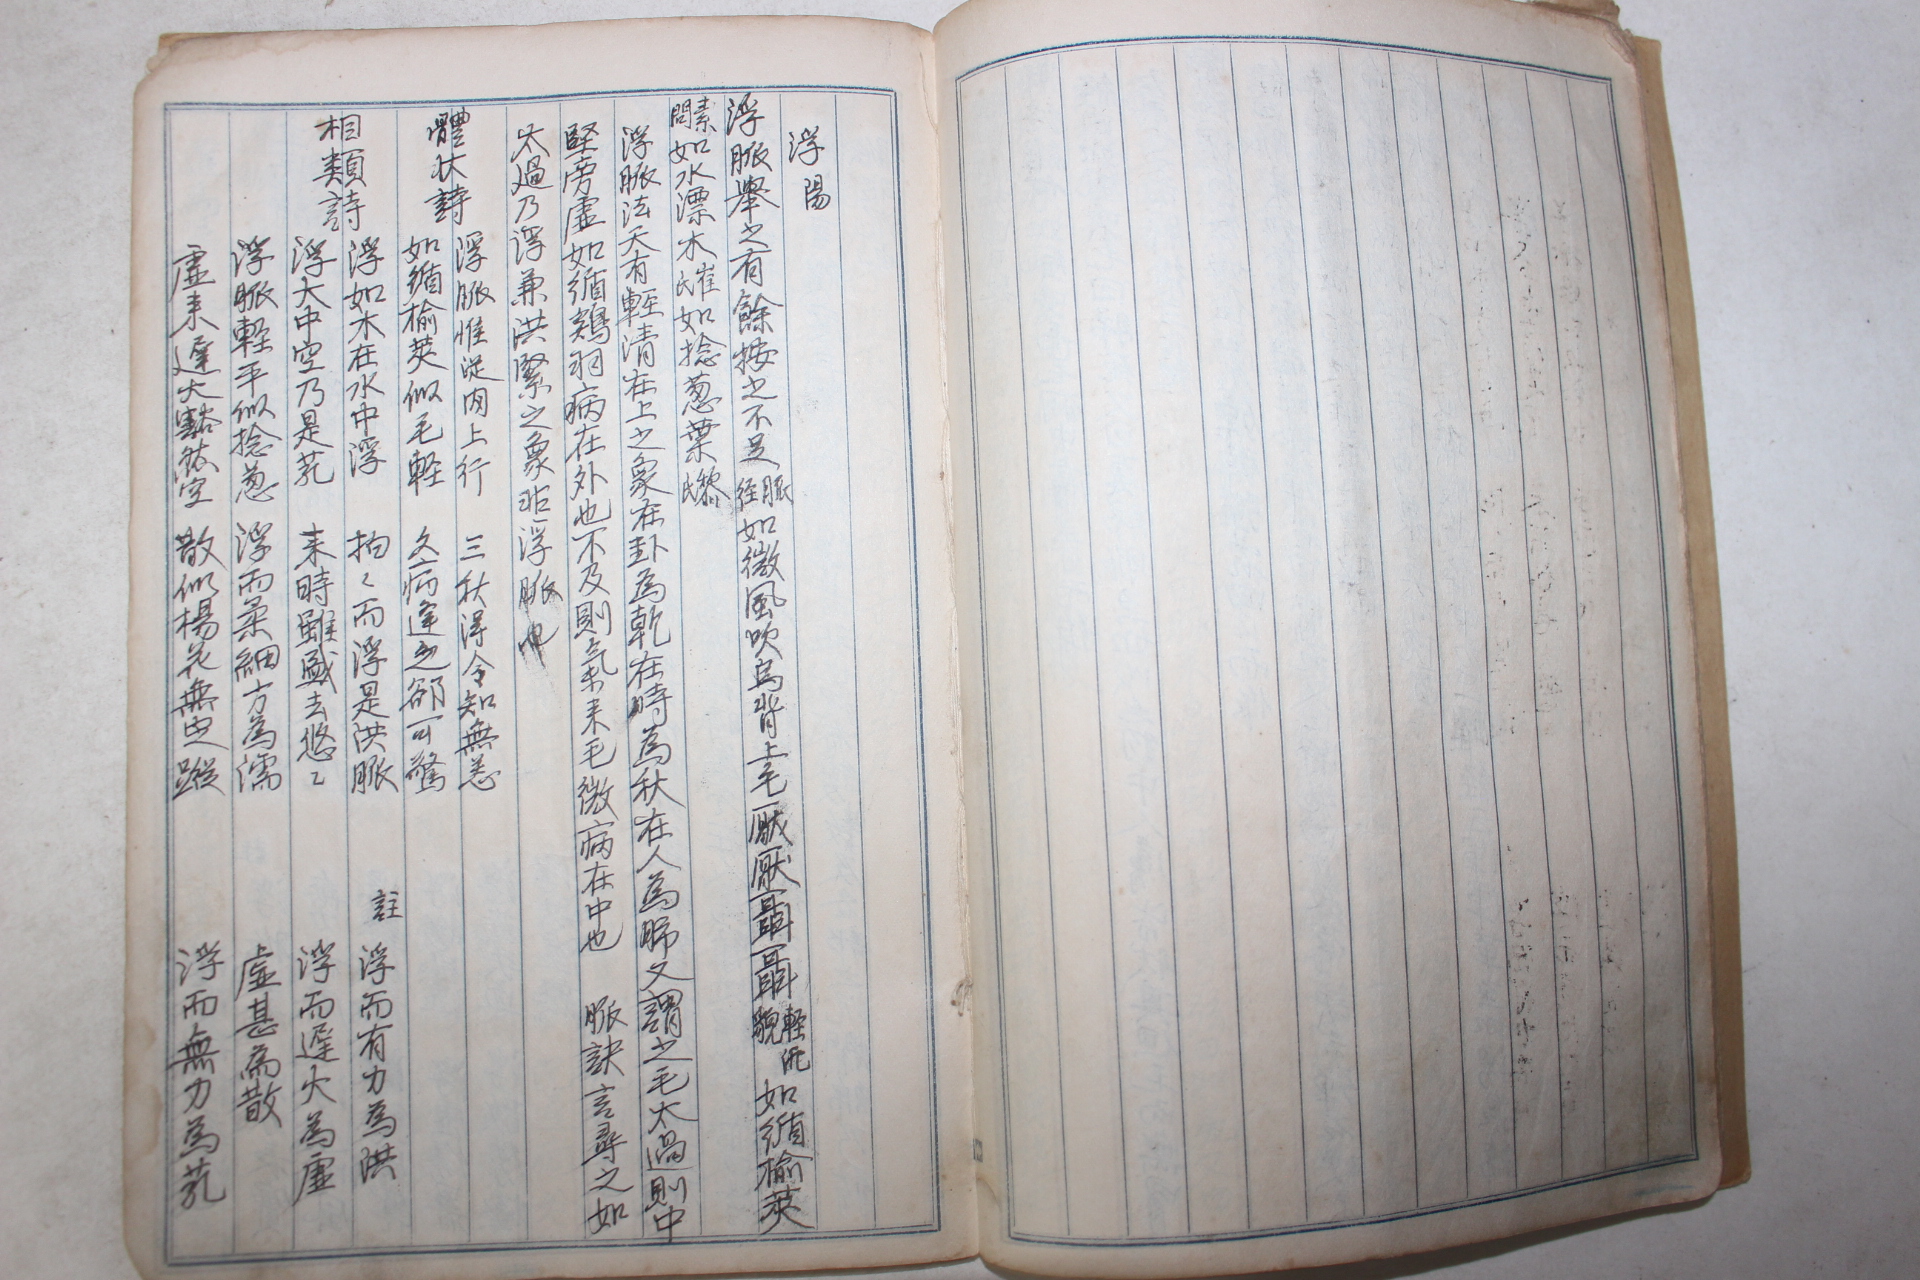 浮陽
浮脈擧之有餘按之不足脈経如微風吹鳥背上毛厭厭聶聶軽汎貌如循楡莢
素問如水漂木崔氏如捻葱葉黎氏
浮脈法天有輕清在上之象在卦為乾在時為秋在人為肺又謂之毛太過則中
堅旁虛如循鷄羽病在外也不及則氣来毛微病在中也 脈訣言尋之如
太過乃浮兼洪緊之象非浮脈也
體状詩
浮脈惟従肉上行 三秋得令知無恙
如循楡莢似毛軽 久病逢之却可驚
相類詩
浮如木在水中浮 拍〻而浮是洪脈 註 浮而有力為洪
浮大中空乃是芤 来時雖盛去悠〻 浮而遲大為虛
浮脈軽平似捻葱 浮而柔細方為濡 虛甚為散
虛来遲大豁然空 散似楊花無定蹤 浮而無力為芤